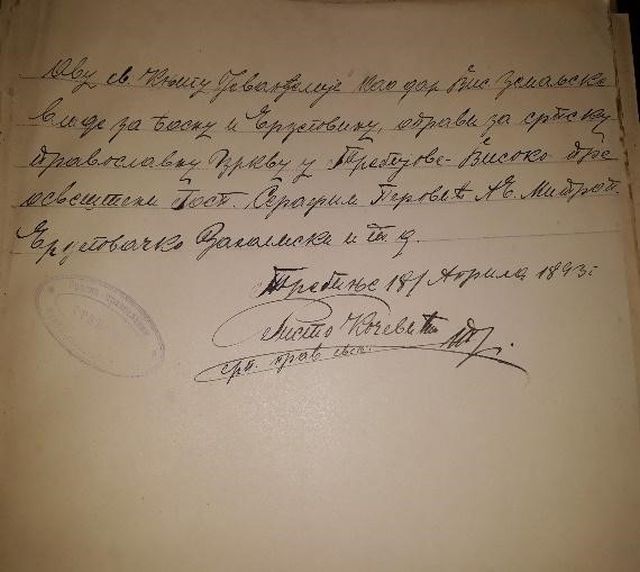 Ову св Књигу Јеванђелије као дар Вис Земаљске
владе за Босну и Ерцеговину, оправи за српску
православну Цркву у Требијове - Високо пре
освештени Госп. Серафим Перовић А.Е. Митроп.
Ерцеговачко Захалмски и т. д.
Требиње 18/ Априла 1893:
Ристо Кочевић
срп. прав свеш.